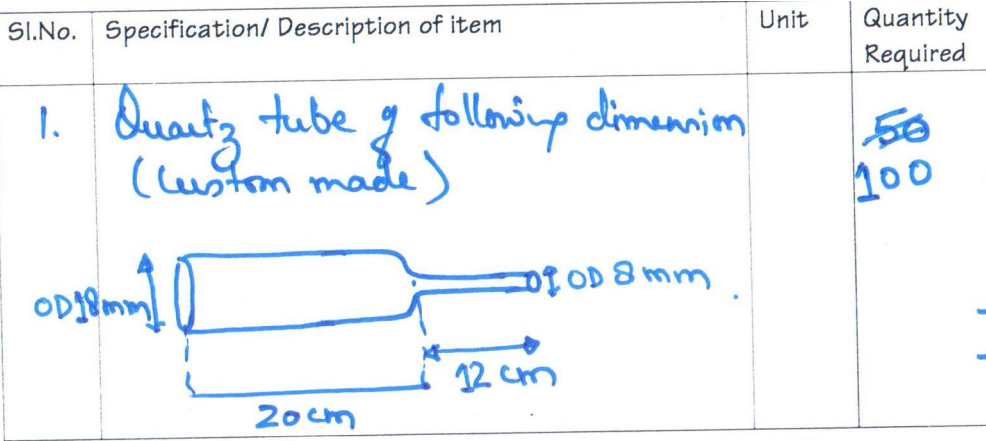 Sl.No. Specification/ Description of item Unit Quantity Required
1. Quartz tube of following dimension
(Custom made)
50
100
OD 18mm
OD 8 mm.
12 cm
20 cm